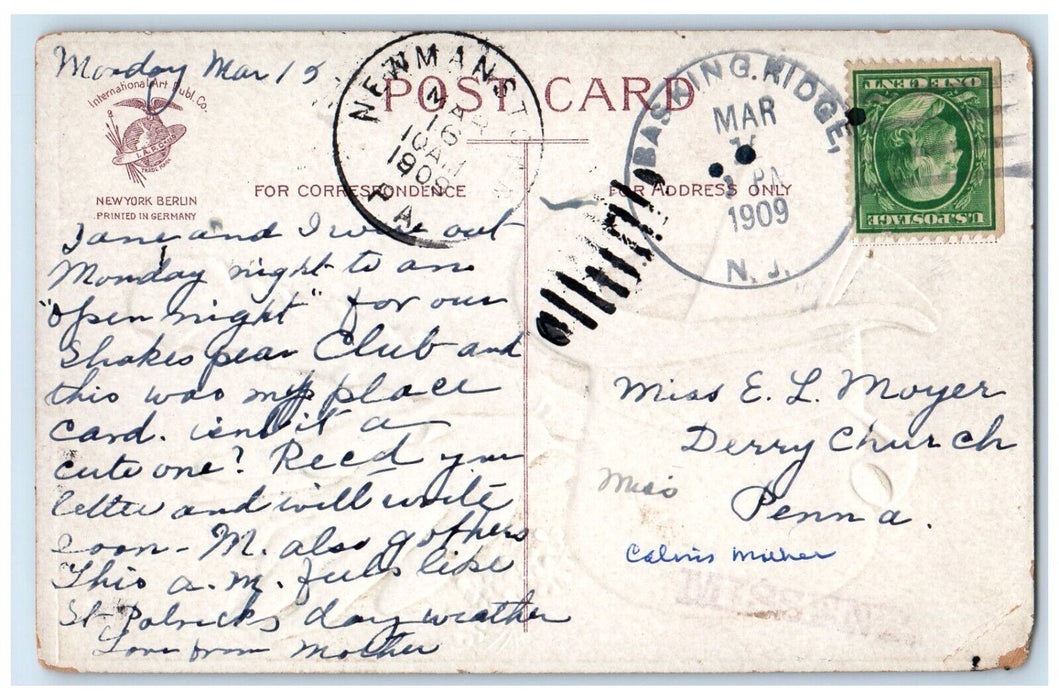 Monday Mar 15
International Art Publ. Co.
I.A.P.CO.
TRADE MARK
NEW YORK BERLIN
PRINTED IN GERMANY
POST CARD
FOR CORRESPONDENCE
FOR ADDRESS ONLY
NEWMANSTOWN
MAR
16
10 AM
1909
PA.
BASKING RIDGE,
MAR
1909
N. J.
U.S. POSTAGE
ONE CENT
Jane and I were out
Monday night to an
"open night" for our
Shakespear Club and
this was my place
card. isnt it a
cute one? Recd your
letter and will write
soon - M. also got hers
This a.m. feels like
St Patricks day weather
Love from Mother
Miss E. L. Moyer
Derry Church
Miss
Penna.
Calvins Mother